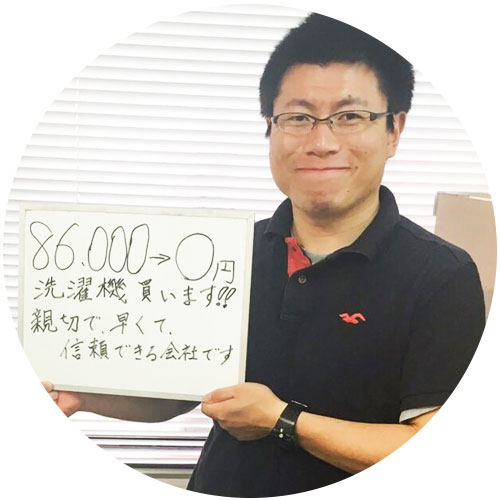 86.000→0円
洗濯機買います!!
親切で、早くて、
信頼できる会社です